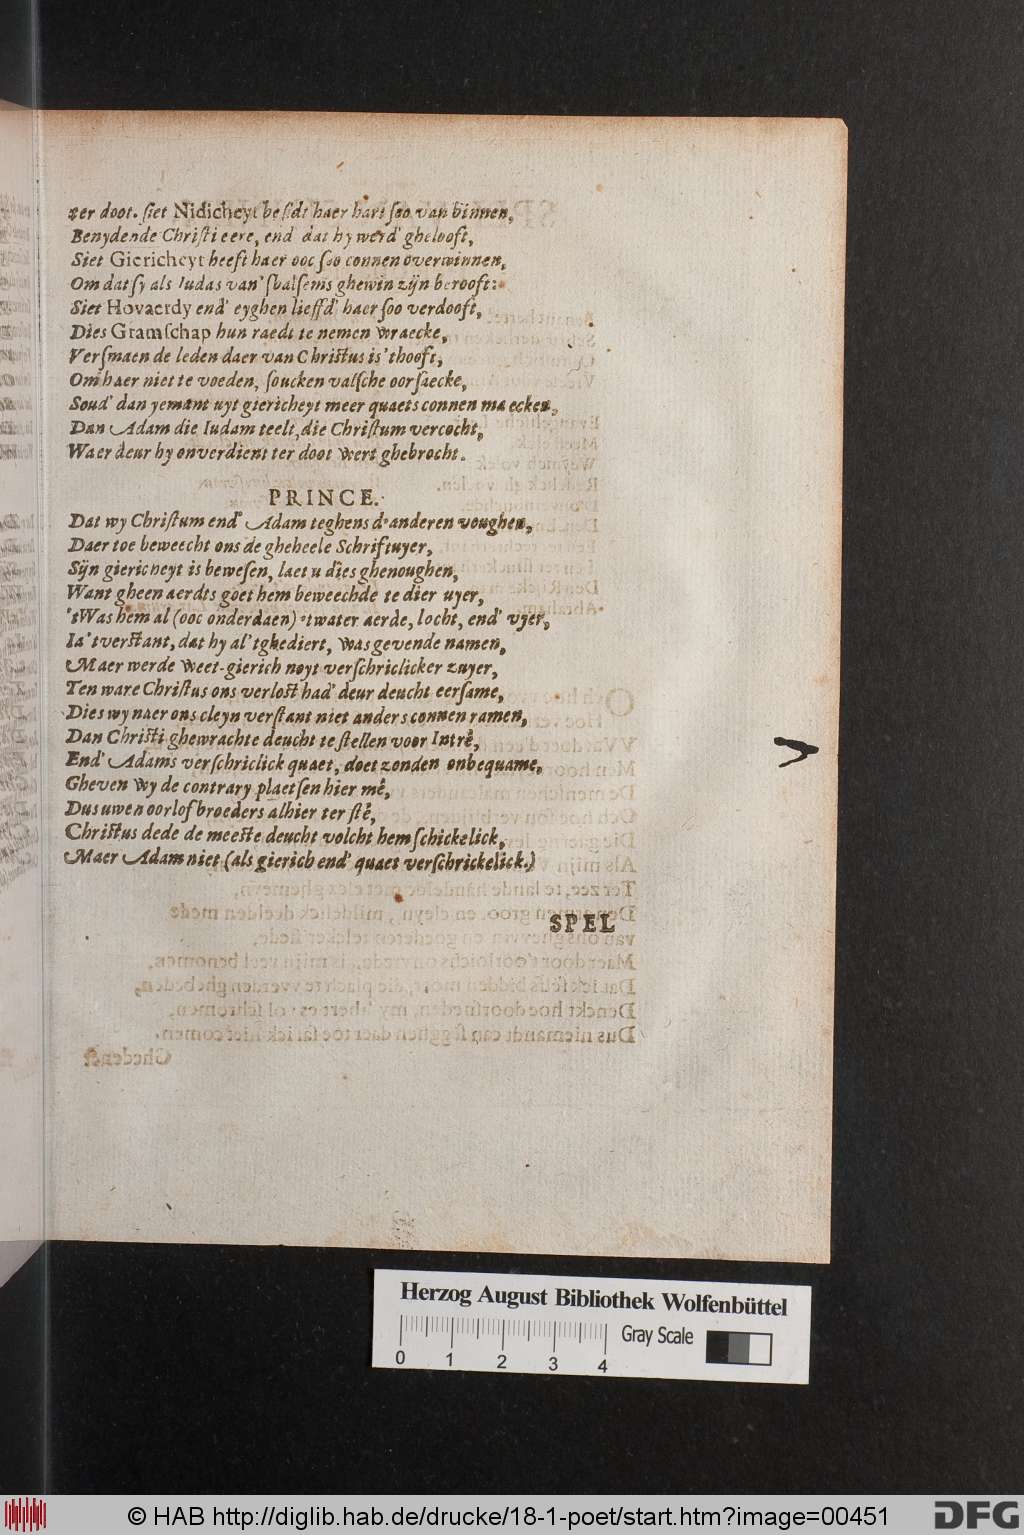 ter doot. siet Nidicheyt besidt haer hart soo van binnen,
Benydende Christi eere, end' dat hy werd' ghelooft,
Siet Giericheyt heeft haer ooc soo connen overwinnen,
Om dat sy als Iudas van'sbalsems ghewin zijn berooft:
Siet Hovaerdy end' eyghen lieffd' haer soo verdooft,
Dies Gramschap hun raedt te nemen wraecke,
Versmaen de leden daer van Christus is 'thooft,
Om haer niet te voeden, soucken valsche oorsaecke,
Soud' dan yemant uyt giericheyt meer quaets connen maecken,
Dan Adam die Iudam teelt, die Christum vercocht,
Waer deur hy onverdient ter doot wert ghebrocht.
PRINCE.
Dat wy Christum end' Adam teghens d'anderen voughen,
Daer toe beweecht ons de gheheele Schriftuyer,
Sijn giericheyt is bewesen, laet u dies ghenoughen,
Want gheen aerdts goet hem beweechde te dier uyer,
'tWas hem al (ooc onderdaen) 'twater aerde, locht, end' vyer,
Ia 't verstant, dat hy al 'tghediert, was gevende namen,
Maer werde weet-gierich noyt verschriclicker zuyer,
Ten ware Christus ons verlost had' deur deucht eersame,
Dies wy naer ons cleyn verstant niet anders connen ramen,
Dan Christi ghewrachte deucht te stellen voor Intrê,
End' Adams verschriclick quaet, doet zonden onbequame,
Gheven wy de contrary plaetsen hier mê,
Dus uwen oorlof broeders alhier ter stê,
Christus dede de meeste deucht volcht hem schickelick,
Maer Adam niet (als gierich end' quaet verschrickelick.)
SPEL
Herzog August Bibliothek Wolfenbüttel
Gray Scale
0 1 2 3 4
© HAB http://diglib.hab.de/drucke/18-1-poet/start.htm?image=00451
DFG